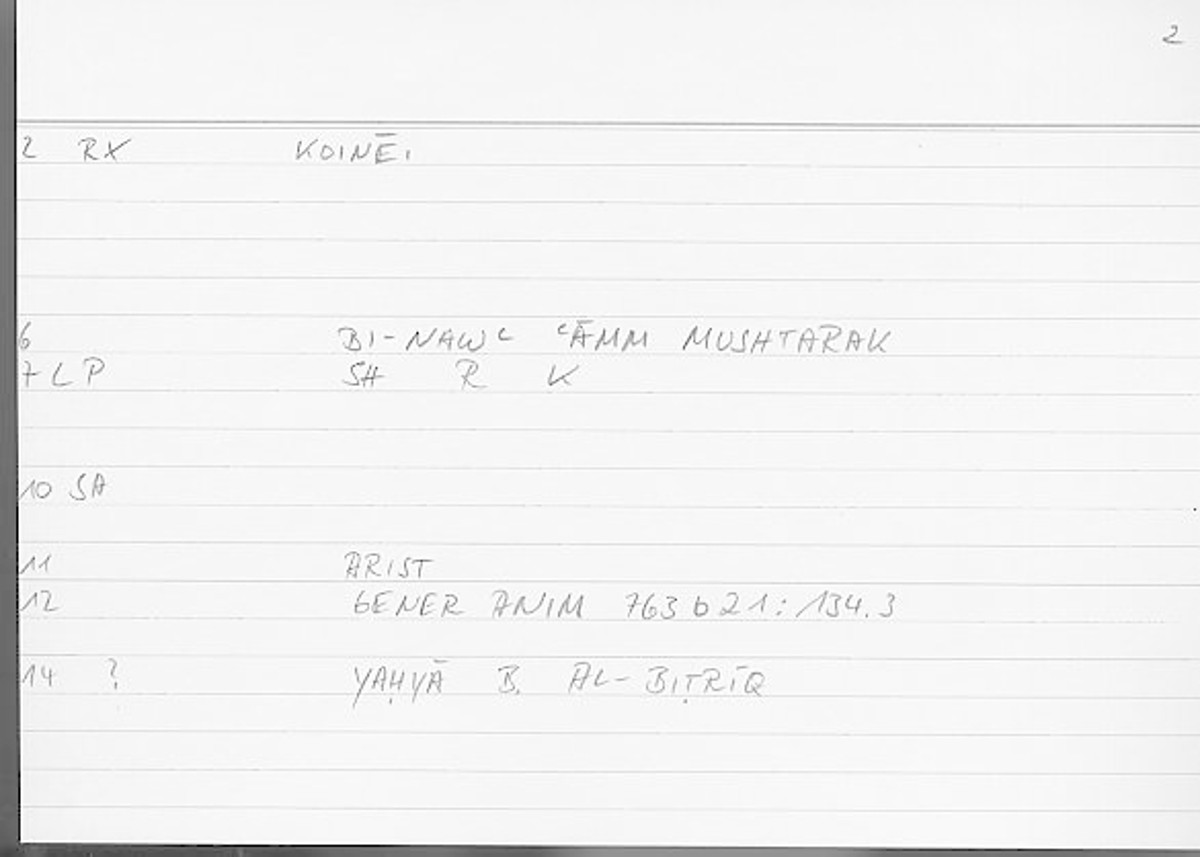 2
2 RX KOINĒI
6 BI-NAWʿ ʿĀMM MUSHTARAK
7 LP SH R K
10 SA
11 ARIST
12 GENER ANIM 763b21:134.3
14 ? YAḤYĀ B. AL-BIṬRĪQ